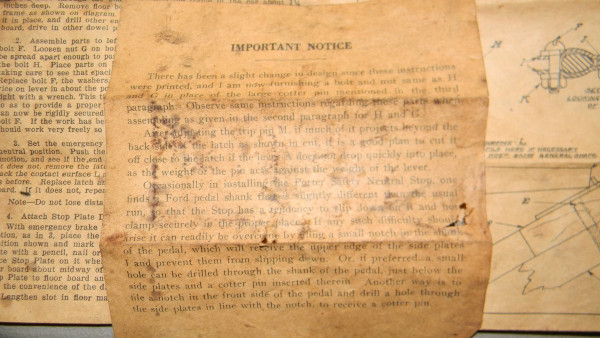 ches deep. Remove floor bo
frame as shown on diagram.
if in place, and drill other en
board, drive in other dowel p
2. Assemble parts to lef
bolt F. Loosen nut G on bol
be spread apart enough to pa
the bolt H. Place parts on
taking care to see that spaci
Replace bolt F, the washers,
vice on lever in about the po
ight with a wrench. This t
so as to provide a proper
can now be rigidly secured
bolt F. If the work has be
should work very freely so
3. Set the emergency
central position. Push the
motion, and see if the end
it does not, remove the latc
back the contact surface L,
as before. Replace latch a
ard. If it does not, repea
Note—Do not lose detai
4. Attach Stop Plate I
With emergency brake
ition, as in 3, place the
ition shown and mark
ate with a pencil, nail or
ce Stop Plate on it whe
r board about midway of
p Plate to floor board an
the convenience of the d
Lengthen slot in floor ma
IMPORTANT NOTICE
There has been a slight change in design since these instructions
were printed, and I am now furnishing a bolt and nut same as H
and G in place of the large cotter pin mentioned in the third
paragraph. Observe same instructions regarding these parts when
assembling as given in the second paragraph for H and G.
After adjusting the top pin M, if much of it projects beyond the
back side of the latch as shown in cut, it is a good plan to cut it
off close to the latch if the lever A does not drop quickly into place
as the weight of the pin acts against the weight of the lever.
Occasionally in installing the Porter Safety Neutral Stop, one
finds a Ford pedal shank that is slightly different from the usual
run, so that the Stop has a tendency to slip down and not
clamp securely in the proper place. If any such difficulty should
arise it can readily be overcome by filing a small notch in the shank
of the pedal, which will receive the upper edge of the side plates
J and prevent them from slipping down. Or, if preferred a small
hole can be drilled through the shank of the pedal, just below the
side plates and a cotter pin inserted therein. Another way is to
file a notch in the front side of the pedal and drill a hole through
the side plates in line with the notch, to receive a cotter pin.
M
P
K
X
E